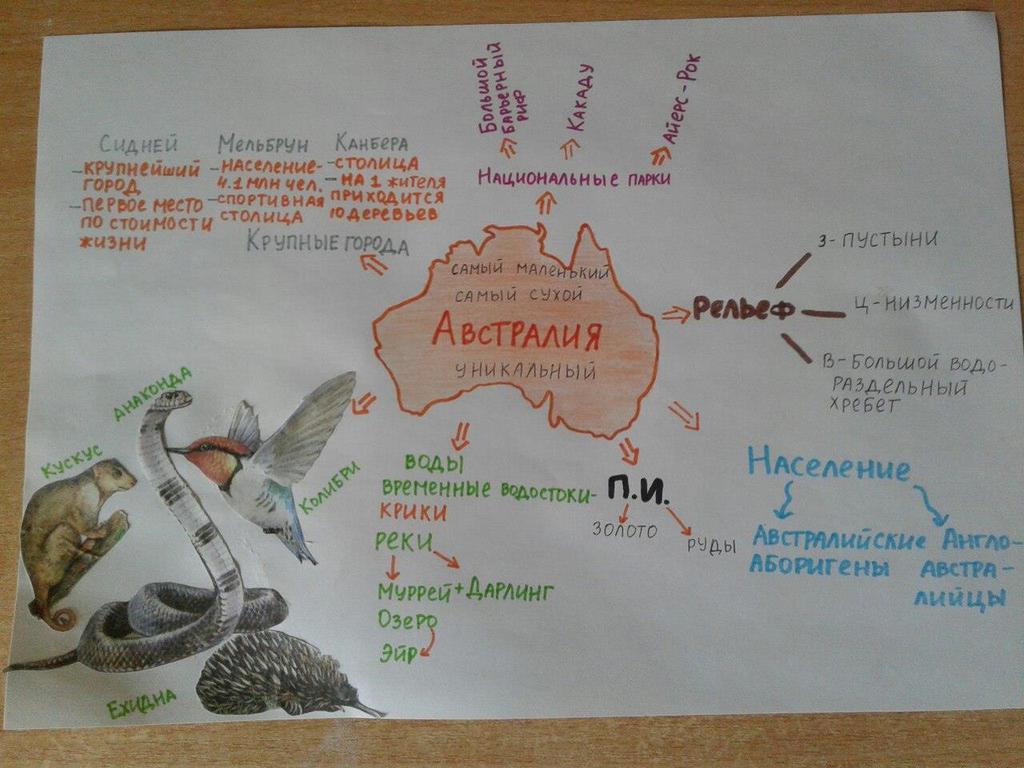 Большой
барьерный
риф
Какаду
Айерс-Рок
Национальные парки
Сидней
- крупнейший
город
- первое место
по стоимости
жизни
Мельбрун
- население-
4.1 млн чел.
- спортивная
столица
Канбера
- столица
- на 1 жителя
приходится
10 деревьев
Крупные города
самый маленький
самый сухой
Австралия
уникальный
Рельеф
З- пустыни
Ц- низменности
В- Большой водо-
раздельный
хребет
Анаконда
Кускус
Колибри
Ехидна
Воды
временные водостоки-
крики
реки
Муррей+Дарлинг
Озеро
Эйр
П.И.
золото
руды
Население
Австралийские
аборигены
Англо-
австра-
лийцы